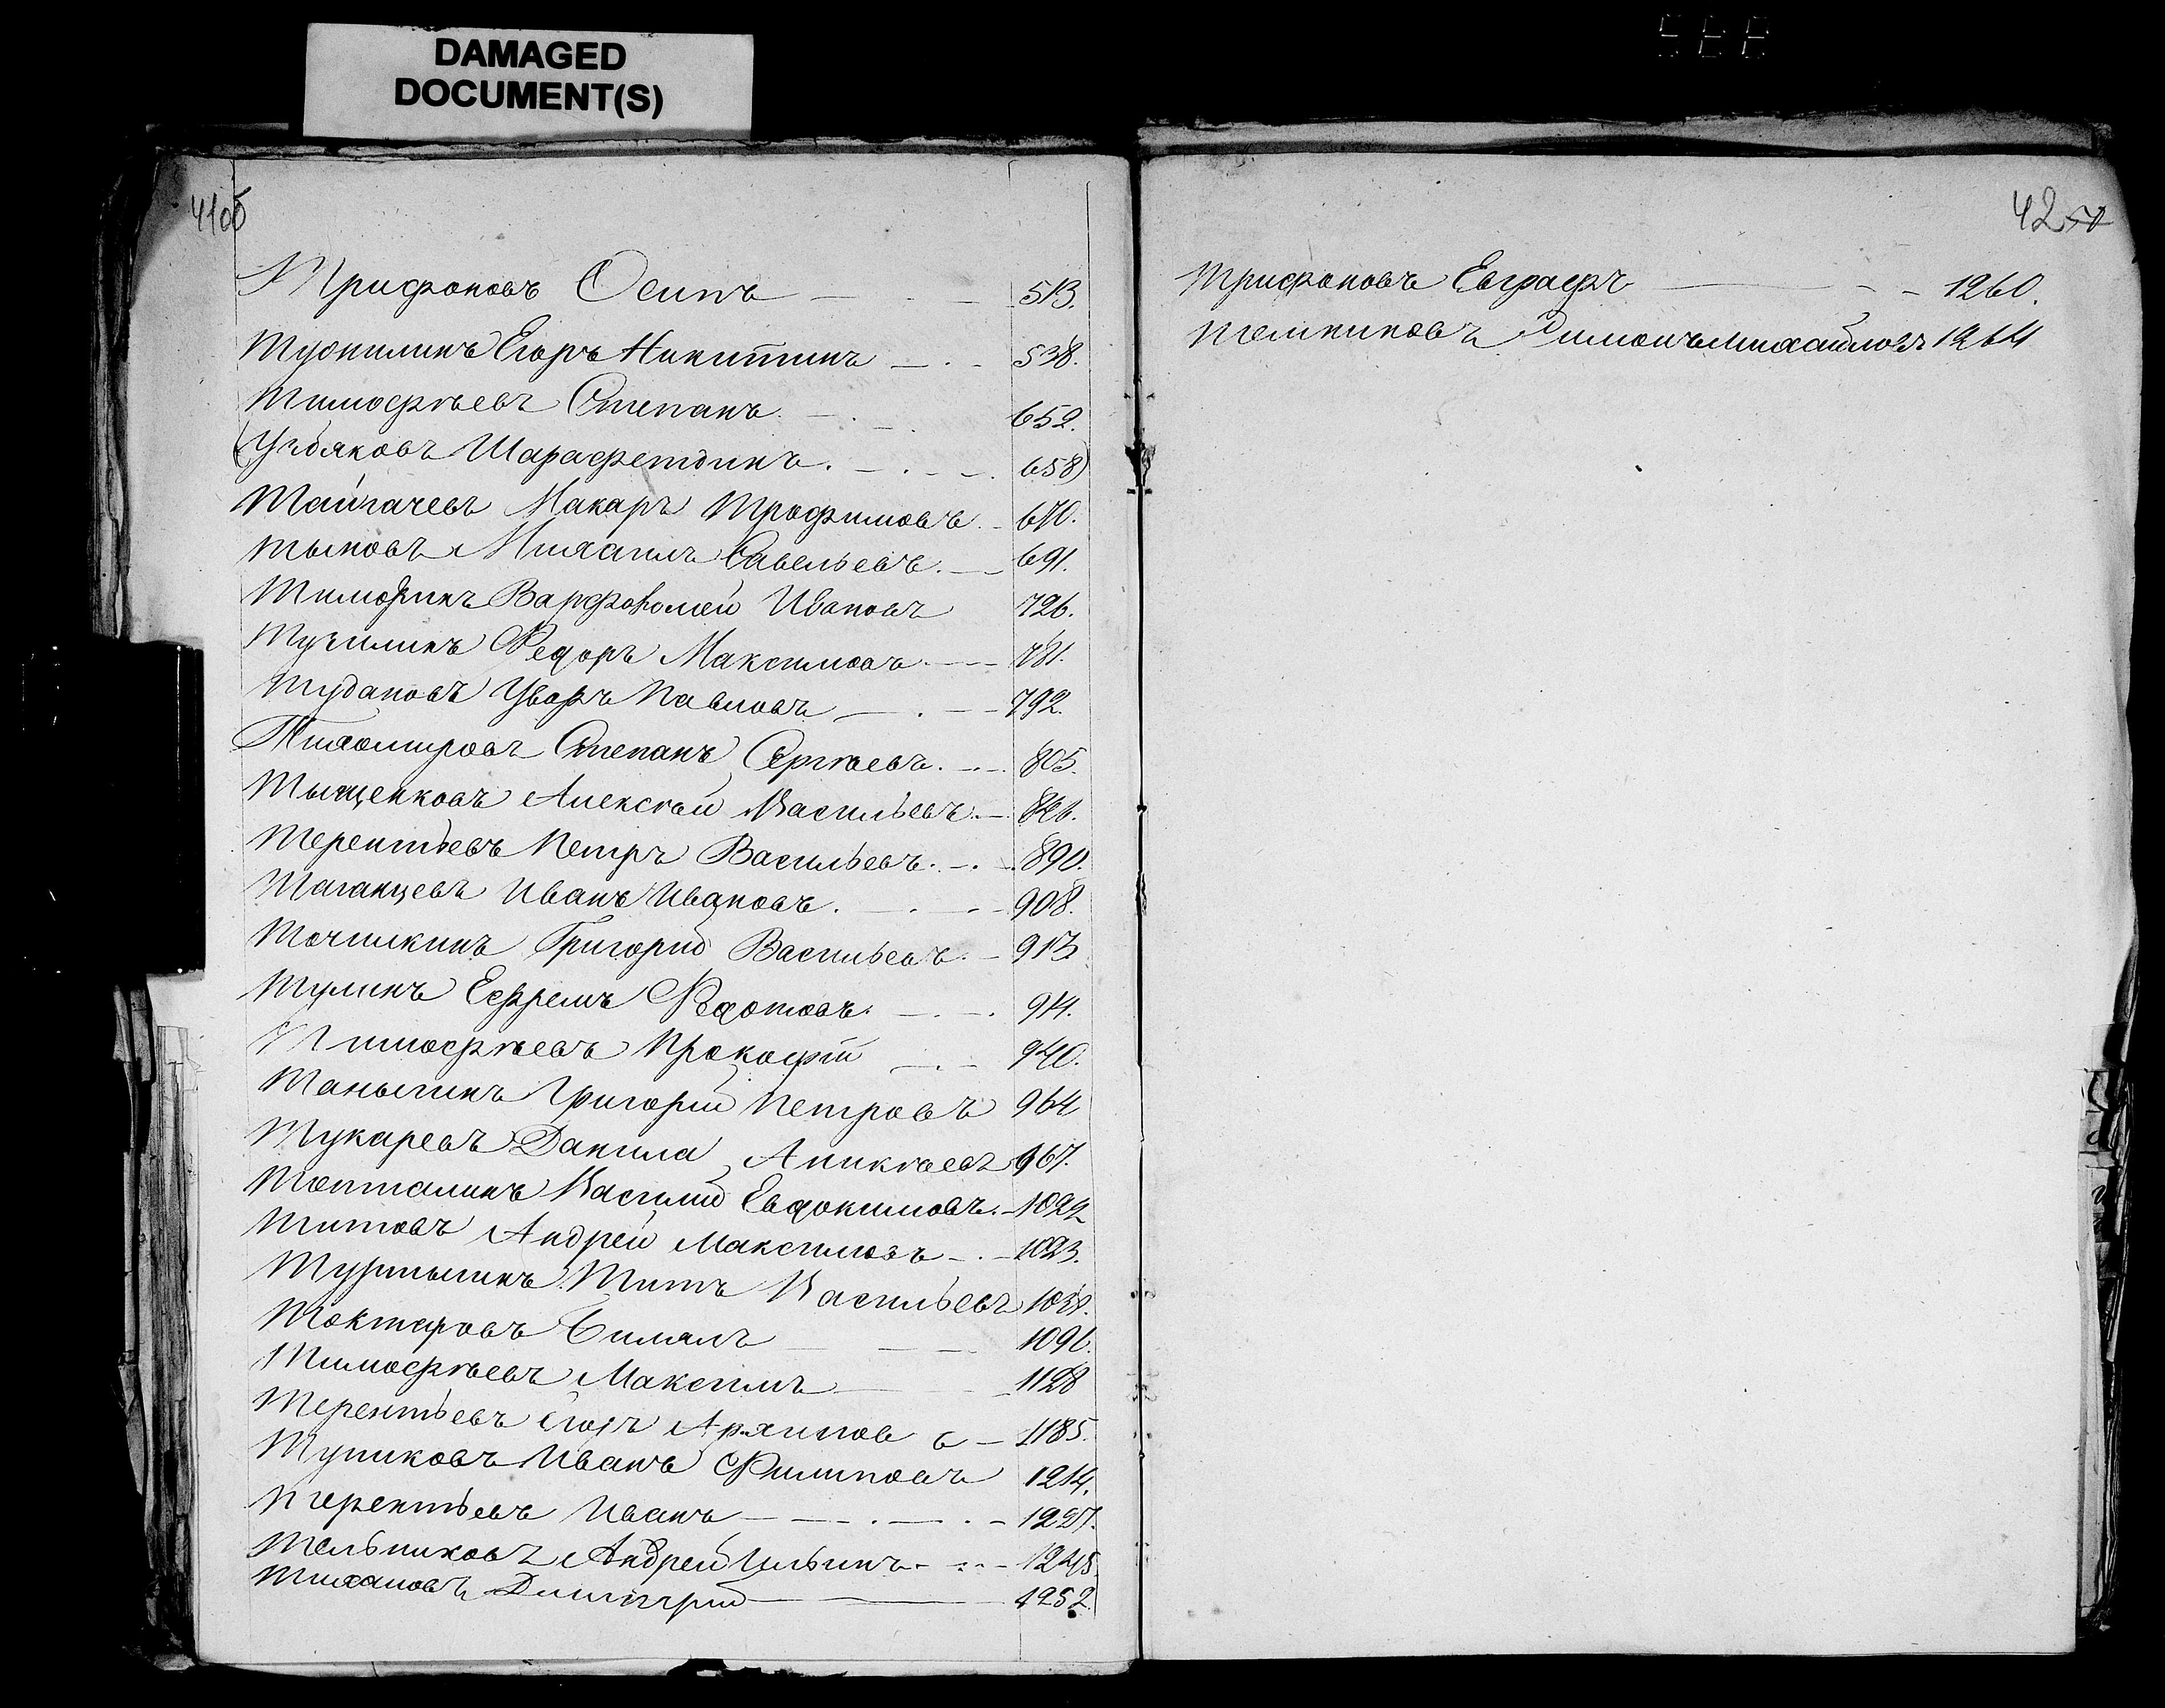 DAMAGED
DOCUMENT(S)
41об
Трифоновъ Осипъ 513.
Егоръ Никитинъ 538.
Тимофѣевъ Степанъ 652.
Шарафетдинъ. 658)
Тайгачевъ Макаръ Трофимовъ 670.
Тыновъ Михаилъ Савельевъ. 691.
Тимофинъ Варфоломей Ивановъ 726.
Тугилинъ Федоръ Максимовъ 781.
Тудановъ Уваръ Павловъ 792.
Тихомировъ Степанъ Сергѣевъ. 805.
Тыщенковъ Алексѣй Васильевъ.
Терентьевъ Петръ Васильевъ. 890.
Таганцевъ Иванъ Ивановъ. 908.
Точилкинъ Григорій Васильевъ. 913
Тулинъ Ефремъ Федотовъ. 914.
Тимофѣевъ Прокофій 940.
Танычинъ Григорій Петровъ 964
Тукаревъ Данила Аникѣевъ 967.
Топталинъ Василій Евдокимовъ. 1022
Титовъ Андрей Максимовъ 1023.
Титъ Васильевъ
Токтаровъ 1096.
Тимофѣевъ Максимъ 1128
Терентьевъ Егоръ Архипов в 1185.
Тупиковъ Иванъ Филиповъ 1214.
Терентьевъ Иванъ 1227.
Тельниковъ Андрей Ильинъ 1245.
Тихановъ Димитрій 1252.
42
Трифоновъ Евграфъ 1260.
Темниковъ Симонъ Михайловъ 1264